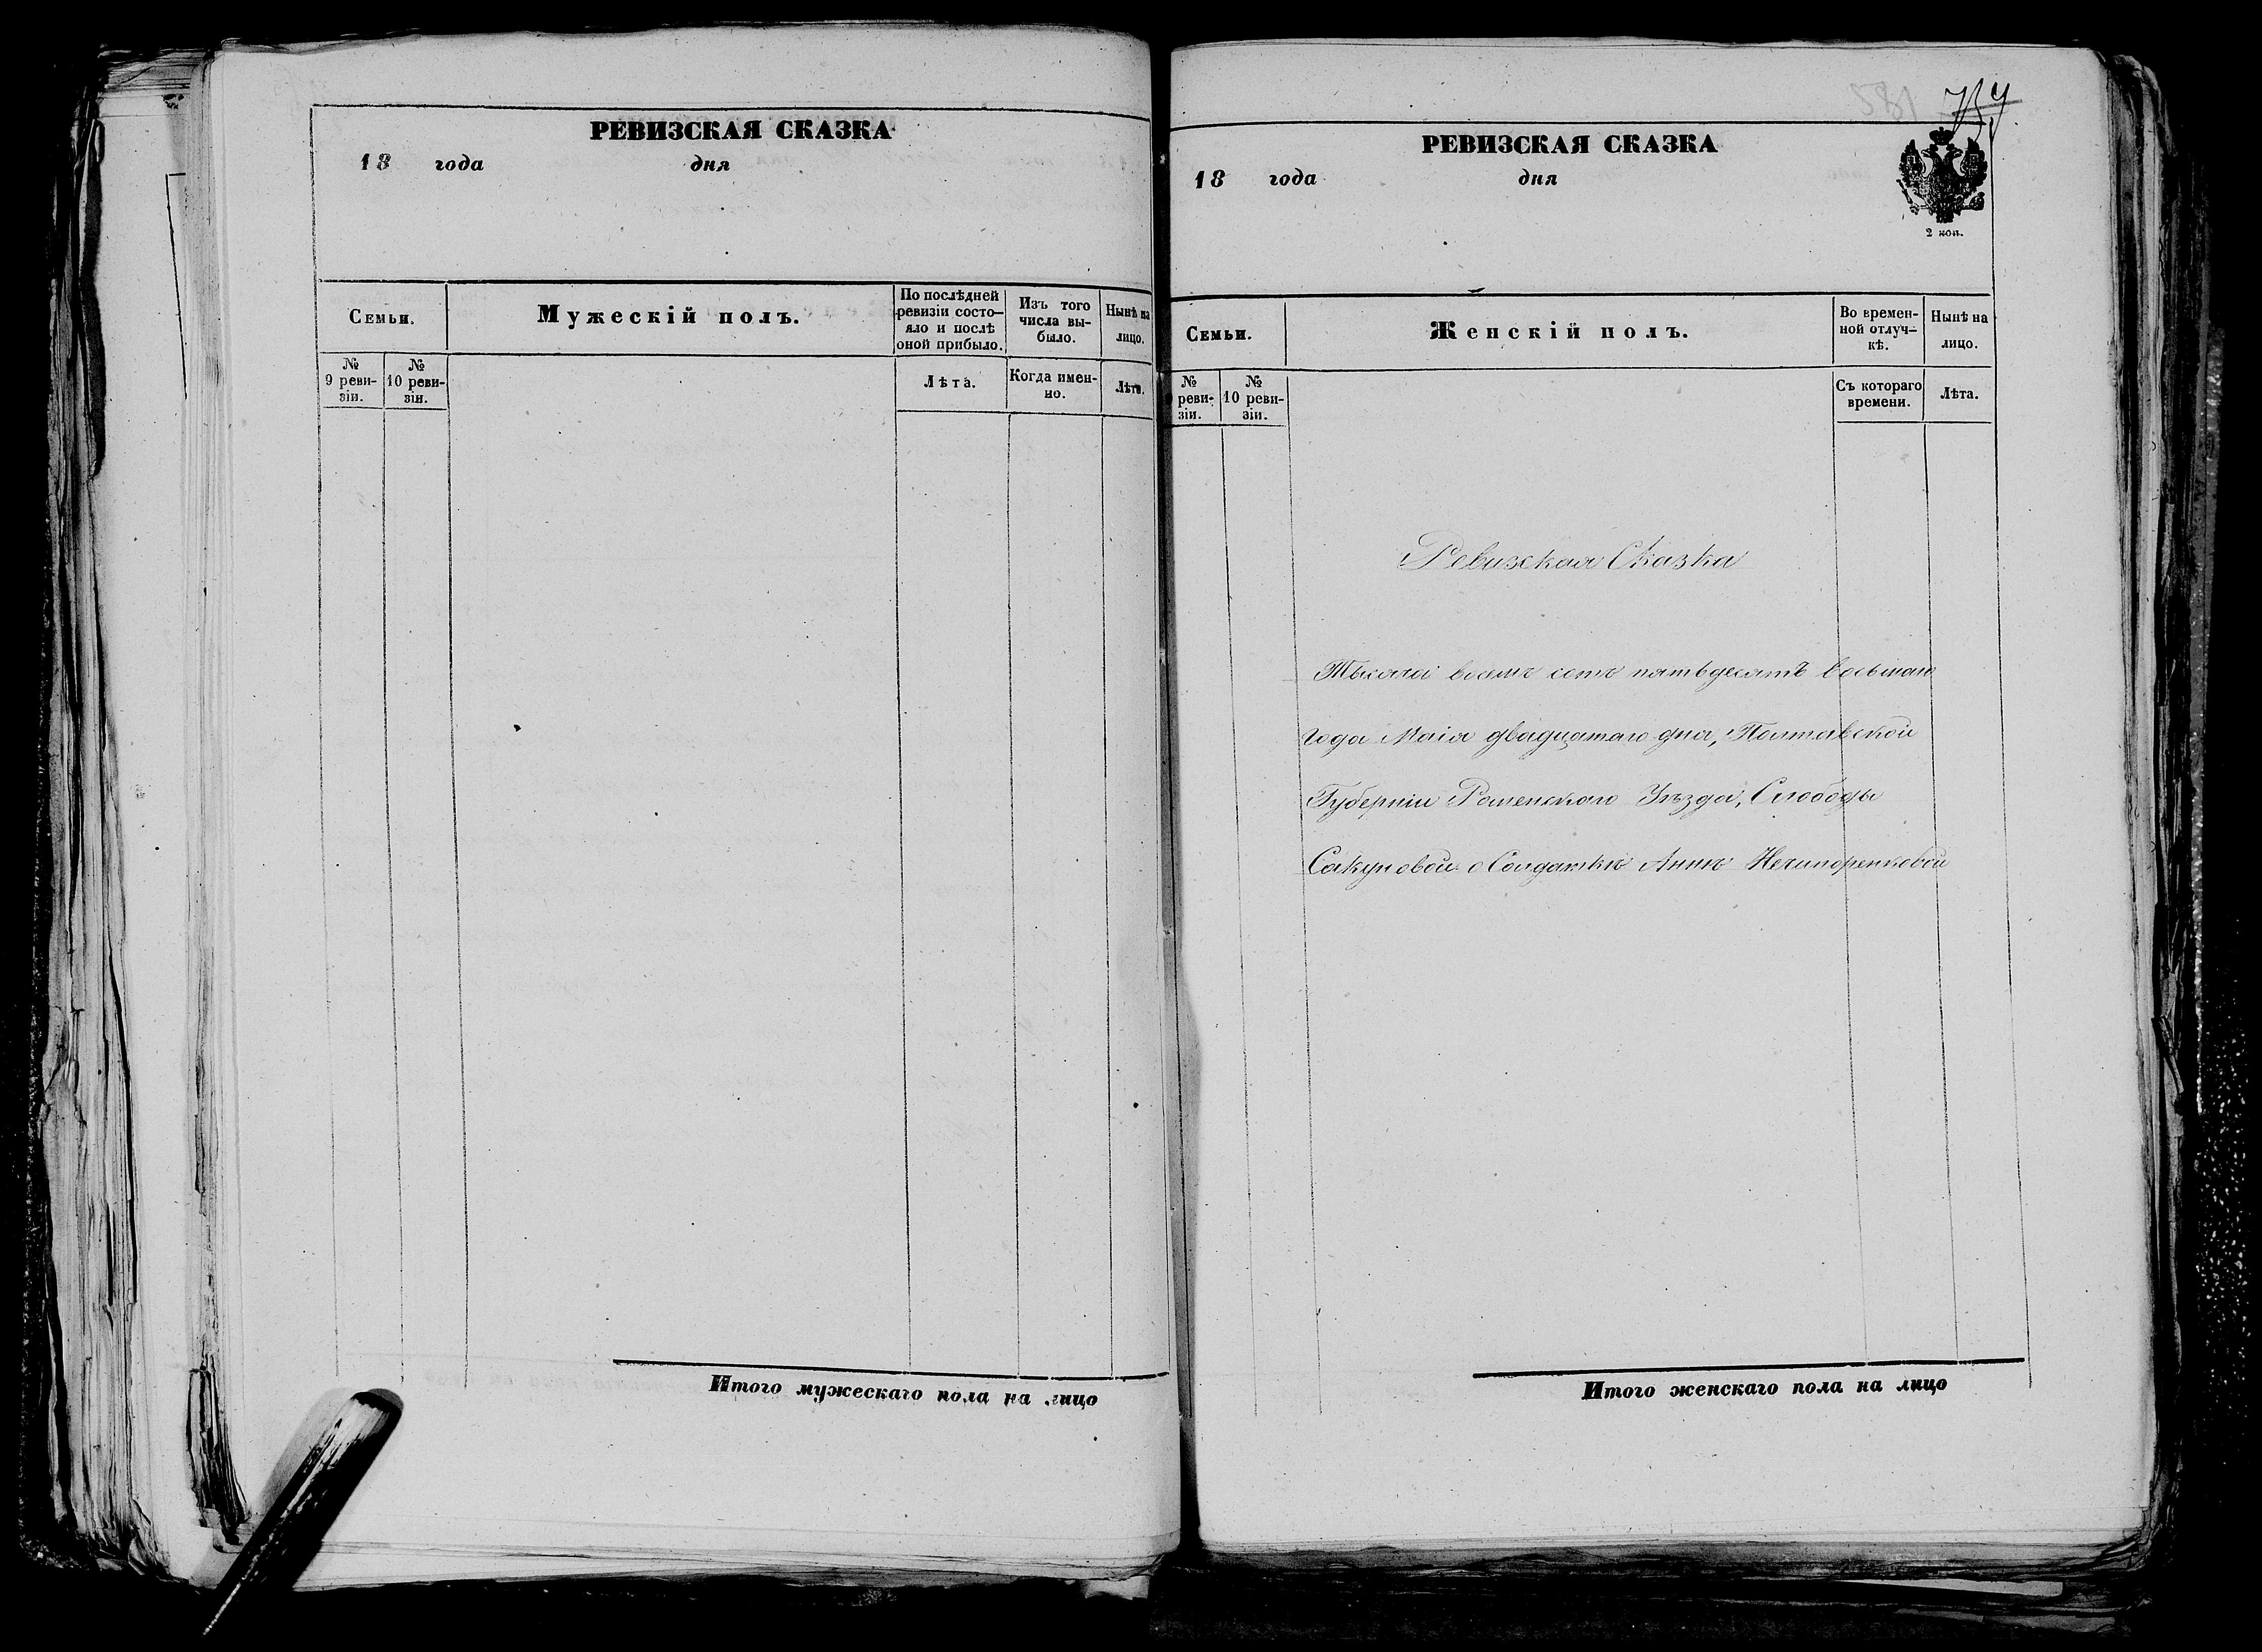 РЕВИЗСКАЯ СКАЗКА
18 года дня
Семьи.
Мужескій полъ.
По послѣдней ревизіи состо-
яло и послѣ оной прибыло.
Изъ того числа вы-
было.
Нынѣ на лицо.
№ 9 реви-
зіи.
№ 10 реви-
зіи.
Лѣта.
Когда имен-
но.
Лѣта.
Итого мужескаго пола на лицо
РЕВИЗСКАЯ СКАЗКА
18 года дня
2 коп.
Семьи.
Женскій полъ.
Во времен-
ной отлуч-
кѣ.
Нынѣ на лицо.
№ реви-
зіи.
№ 10 реви-
зіи.
Съ котораго времени.
Лѣта.
Ревизская Сказка
Тысяча восемъ сотъ пятьдесятъ восьмаго
года Маія двадцатаго дня, Полтавской
Губерніи Роменскаго Уѣзда, Слободы
Сакуновой о Солдаткѣ Аннѣ Нечипоренковой
Итого женскаго пола на лицо